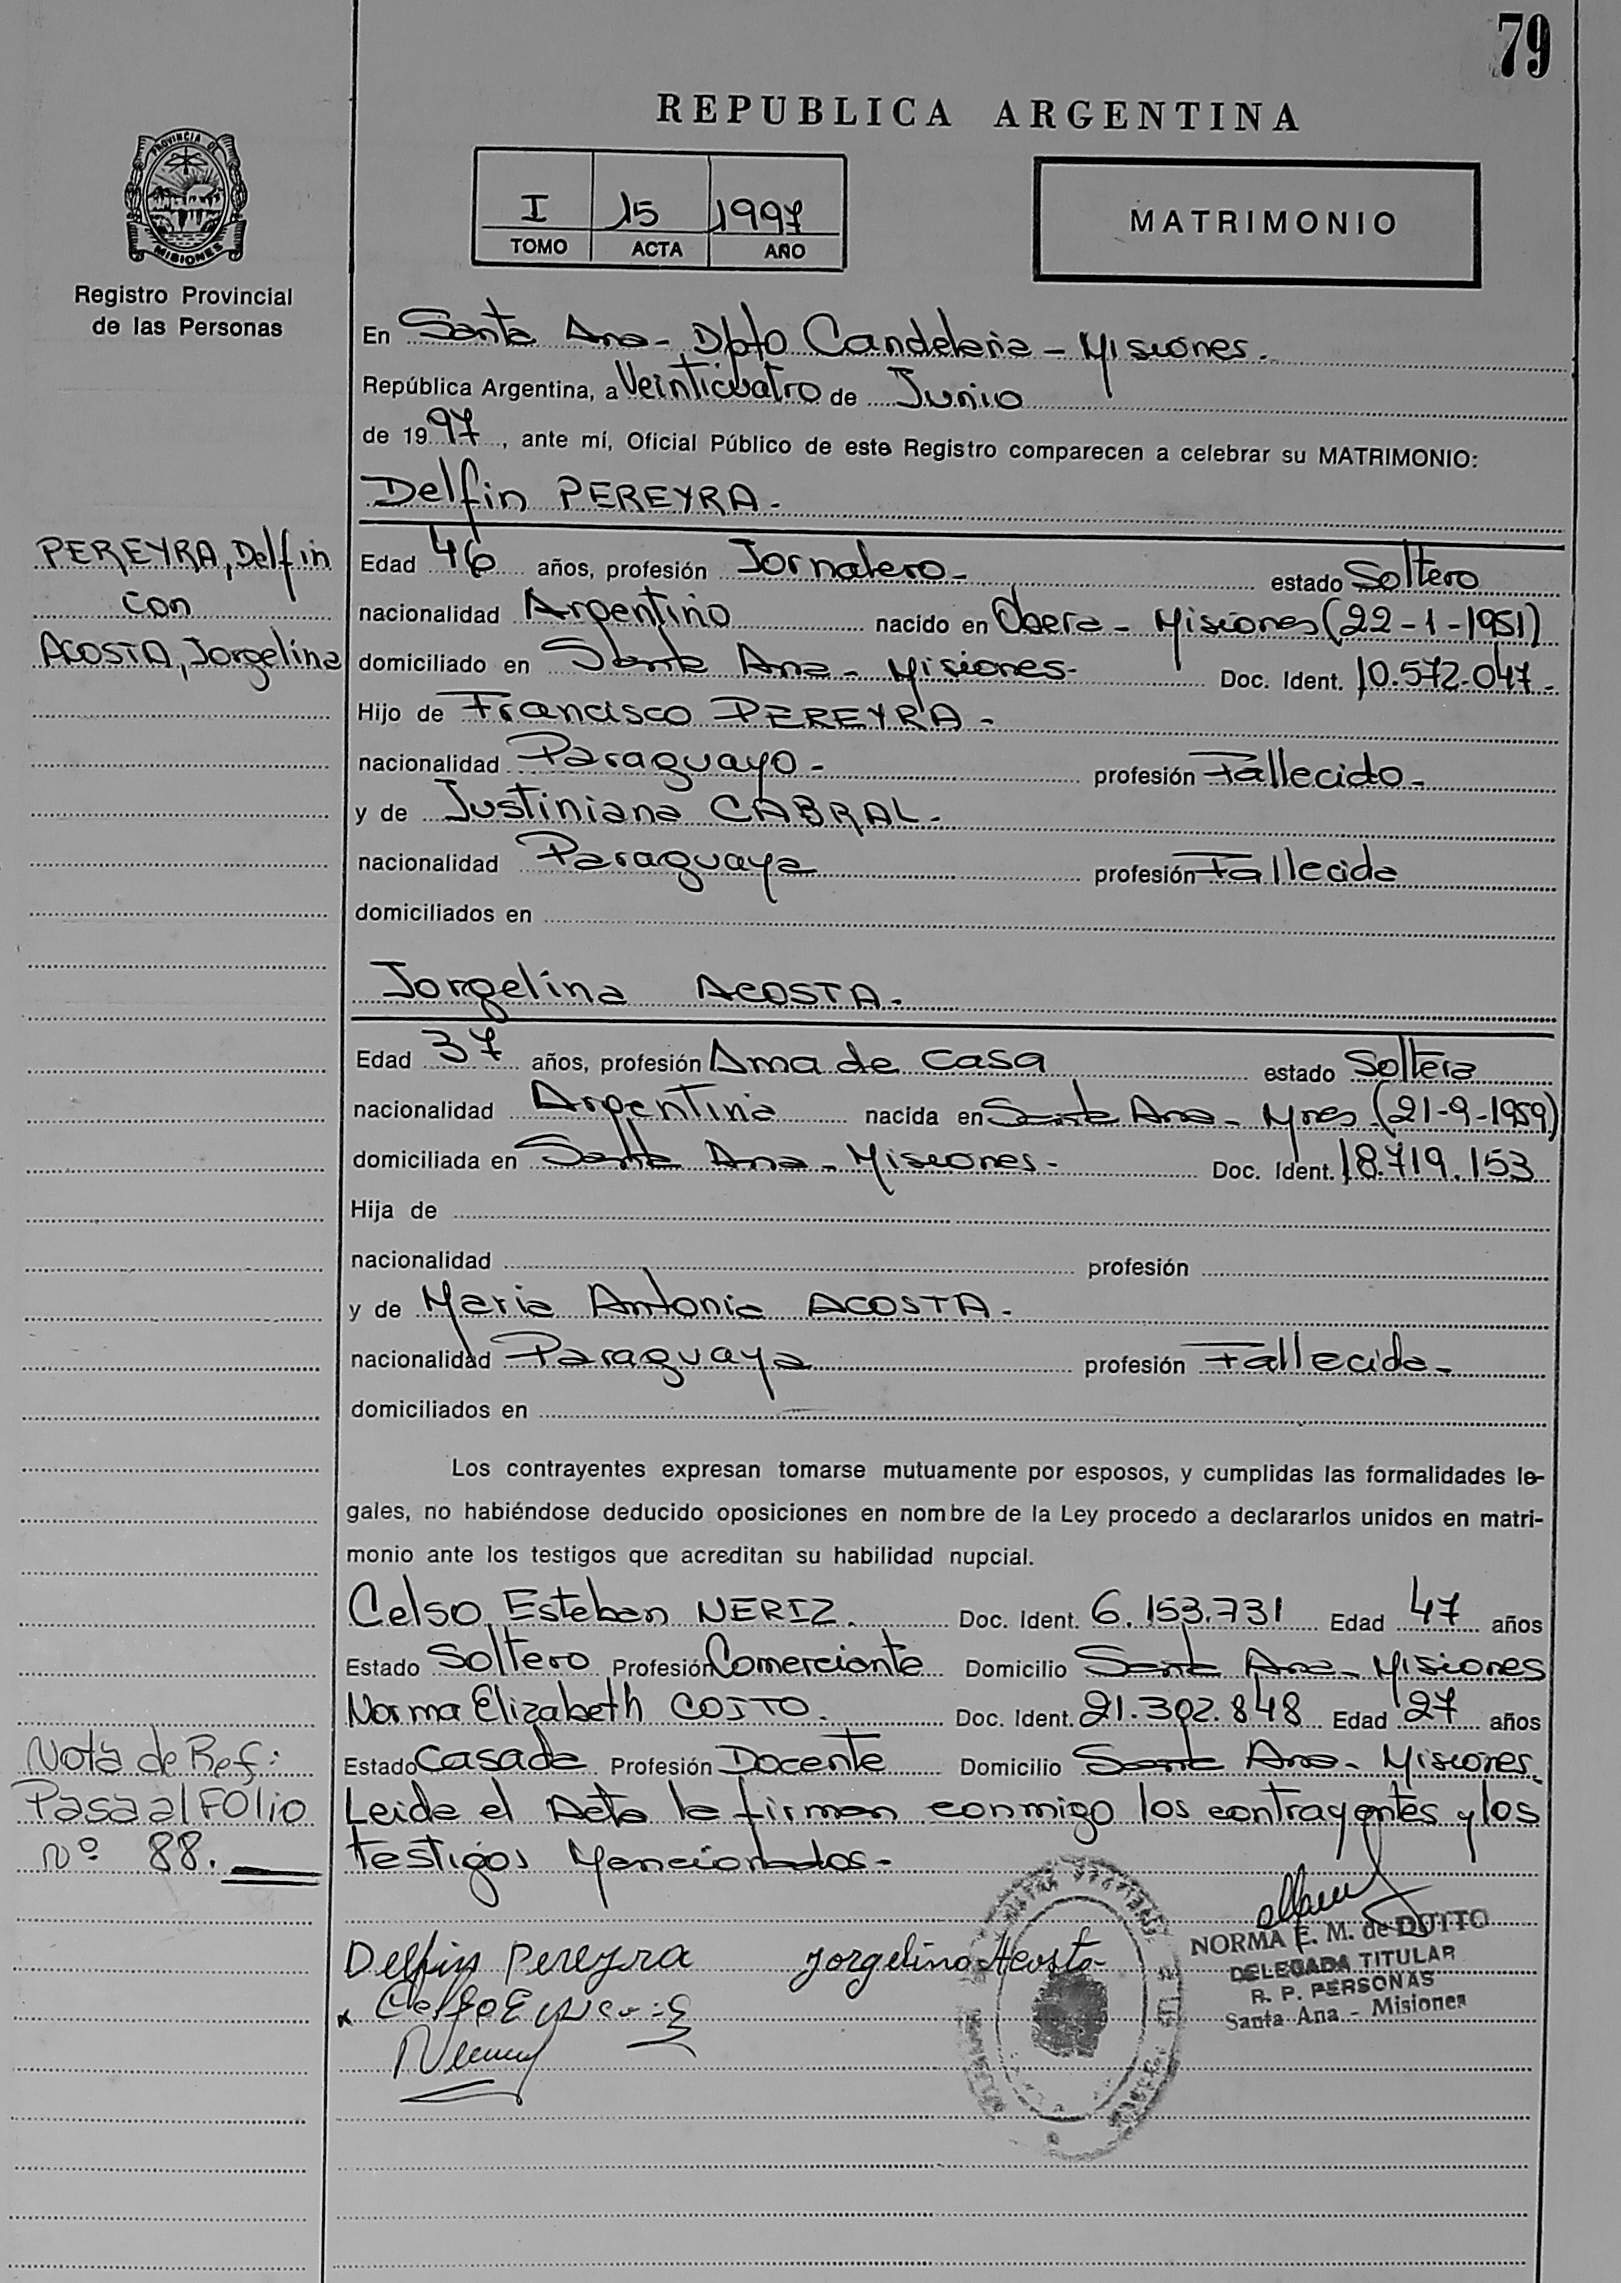 79
REPUBLICA ARGENTINA
PROVINCIA DE
MISIONES
Registro Provincial
de las Personas
I 15 1997
TOMO ACTA AÑO
MATRIMONIO
En Santa Ana - Dpto Candelaria - Misiones.
República Argentina, a Veinticuatro de Junio
de 1997, ante mí, Oficial Público de este Registro comparecen a celebrar su MATRIMONIO:
Delfin PEREYRA.
PEREYRA, Delfin
con
ACOSTA, Jorgelina
Edad 46 años, profesión Jornalero - estado Soltero
nacionalidad Argentino nacido en Obera - Misiones (22-1-1951)
domiciliado en Santa Ana - Misiones - Doc. Ident. 10.572.047 -
Hijo de Francisco PEREYRA -
nacionalidad Paraguayo - profesión Fallecido -
y de Justiniana CABRAL -
nacionalidad Paraguaya profesión Fallecida
domiciliados en
Jorgelina ACOSTA -
Edad 37 años, profesión Ama de casa estado Soltera
nacionalidad Argentina nacida en Santa Ana - Mnes (21-9-1959)
domiciliada en Santa Ana - Misiones - Doc. Ident. 18.719.153
Hija de
nacionalidad profesión
y de Maria Antonia ACOSTA -
nacionalidad Paraguaya profesión Fallecida -
domiciliados en
Los contrayentes expresan tomarse mutuamente por esposos, y cumplidas las formalidades le-
gales, no habiéndose deducido oposiciones en nombre de la Ley procedo a declararlos unidos en matri-
monio ante los testigos que acreditan su habilidad nupcial.
Celso Esteban NERIZ. Doc. Ident. 6.153.731 Edad 47 años
Estado Soltero Profesión Comerciante Domicilio Santa Ana - Misiones
Norma Elizabeth COSTO. Doc. Ident. 21.302.848 Edad 27 años
Estado Casada Profesión Docente Domicilio Santa Ana - Misiones.
Leida el Acta la firman conmigo los contrayentes y los
testigos Mencionados -
Nota de Ref:
Pasa al FOlio
nº 88.
Delfin Pereyra Jorgelina Acosta
NORMA E. M. de DUTTO
DELEGADA TITULAR
R. P. PERSONAS
Santa Ana - Misiones